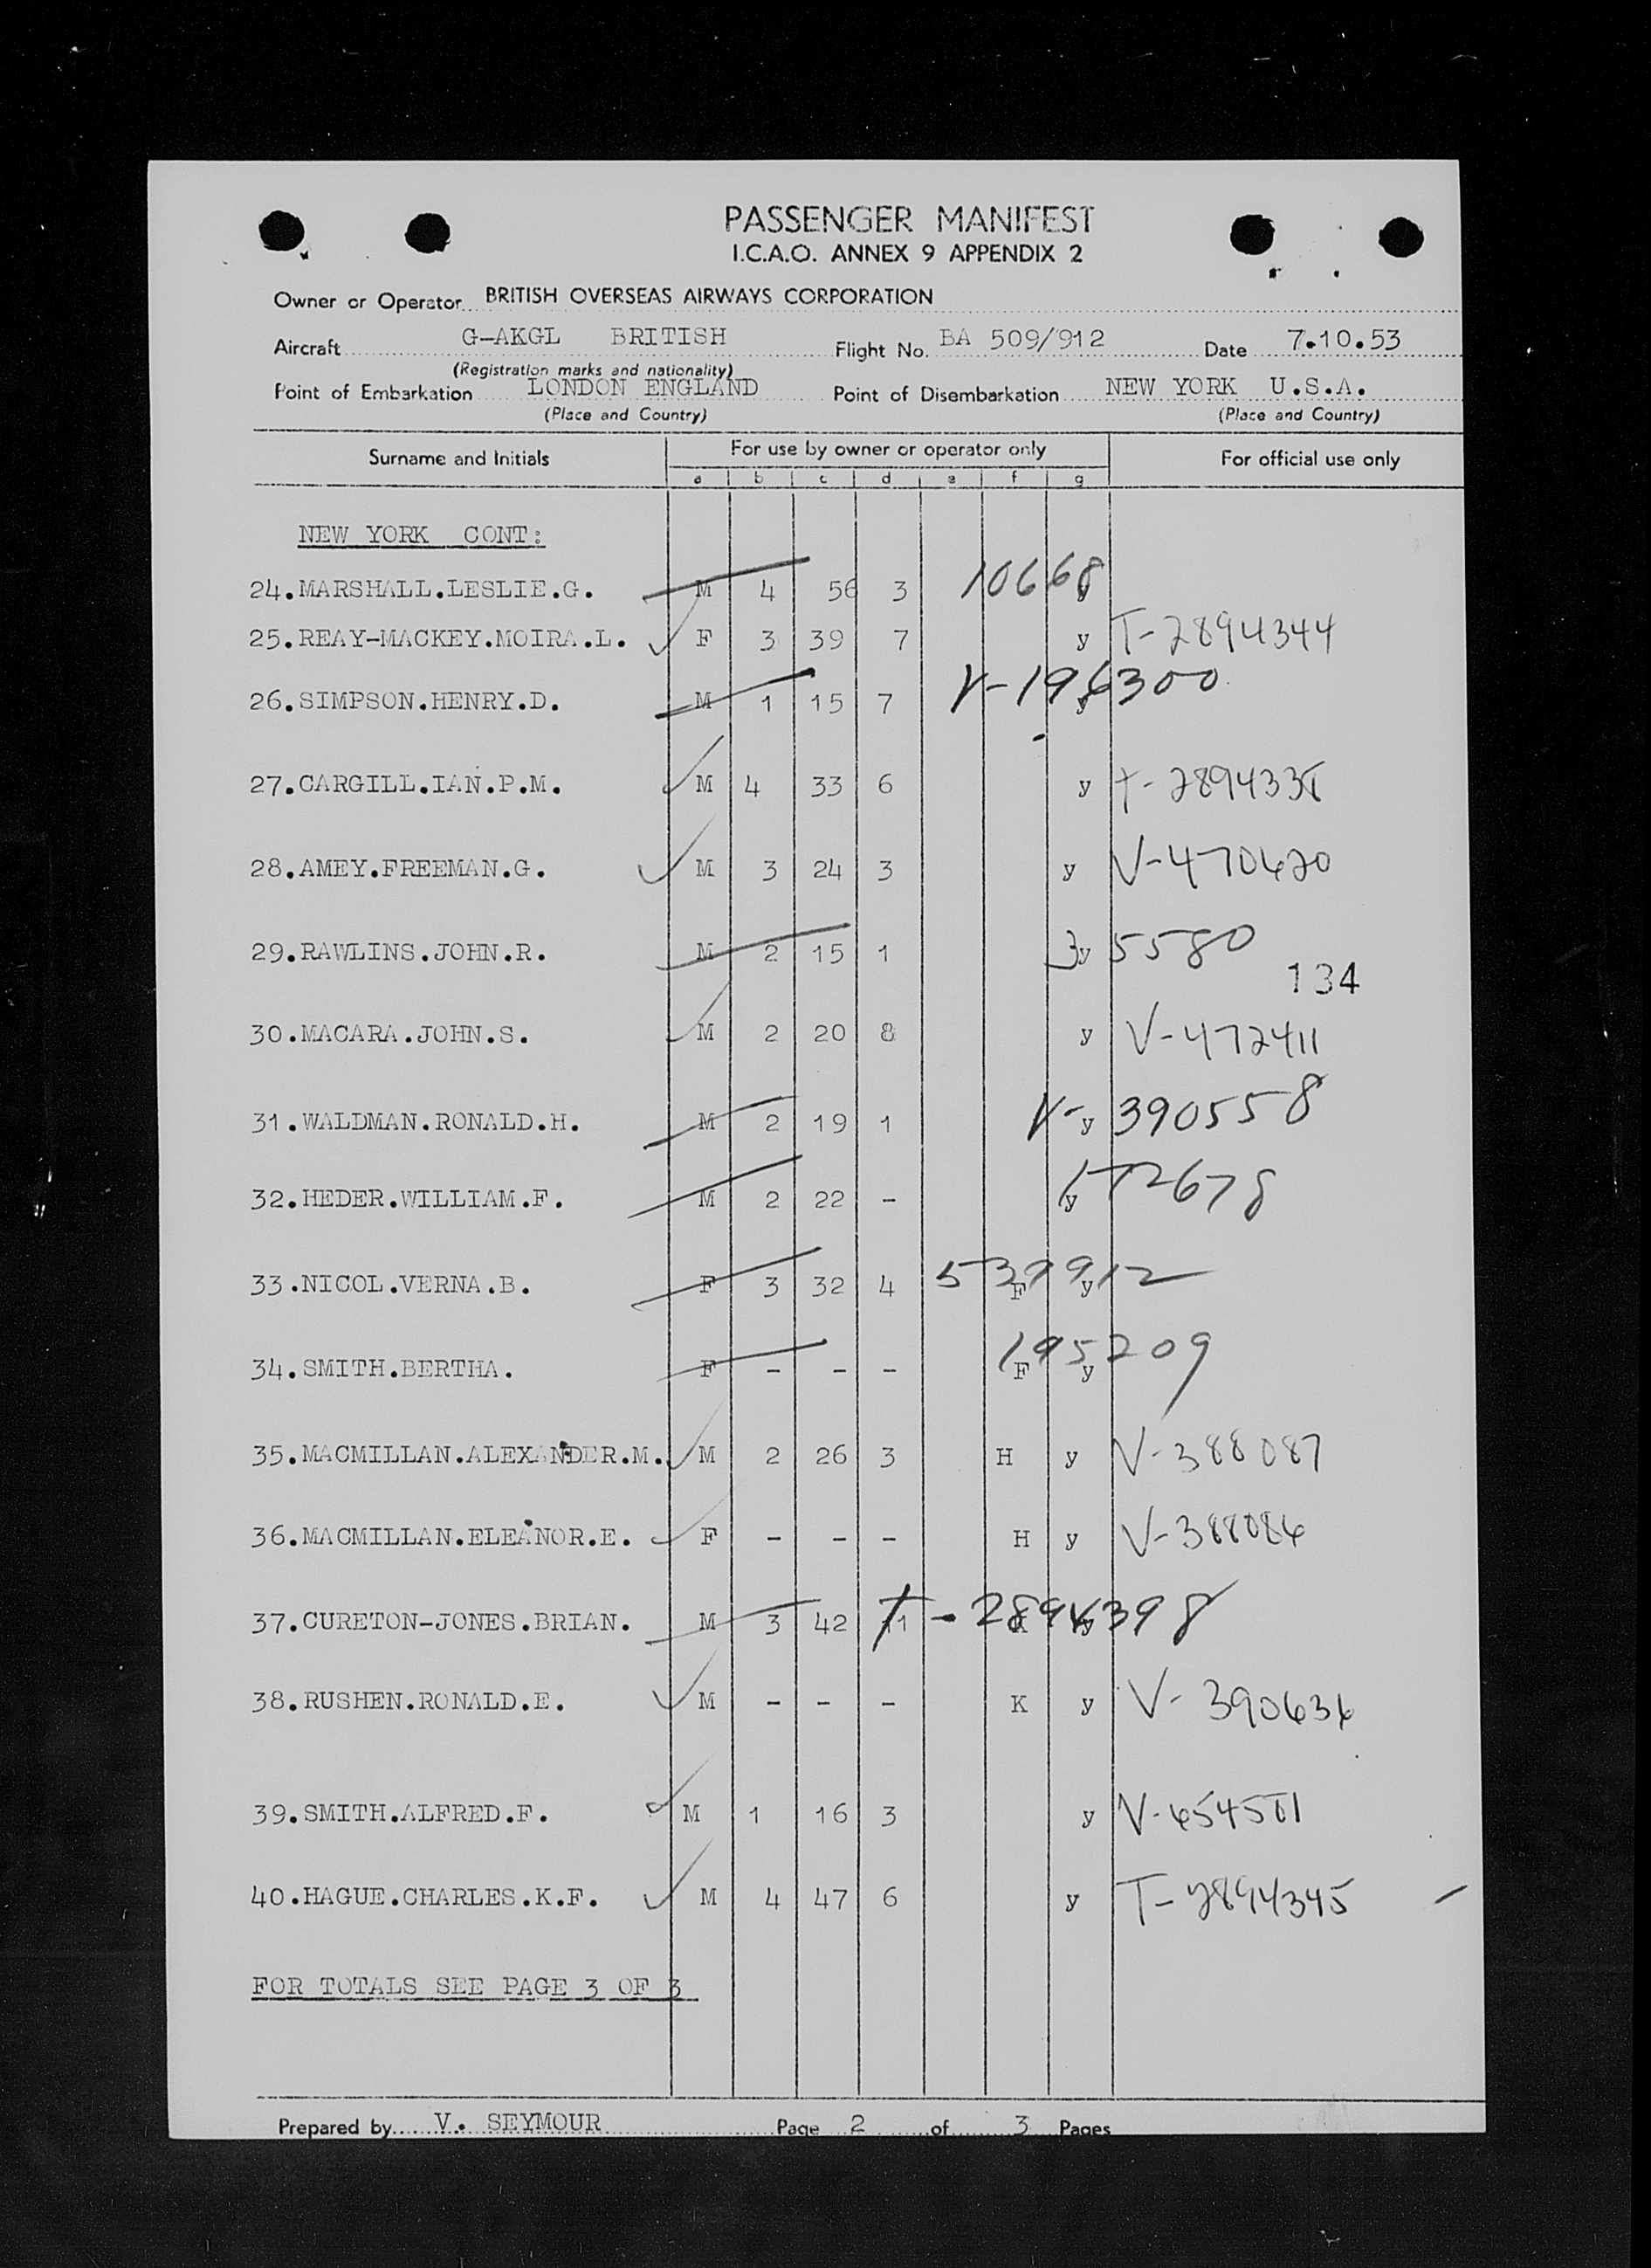 PASSENGER MANIFEST
I.C.A.O. ANNEX 9 APPENDIX 2
Owner or Operator BRITISH OVERSEAS AIRWAYS CORPORATION
Aircraft G-AKGL BRITISH Flight No. BA 509/912 Date 7.10.53
(Registration marks and nationality)
Point of Embarkation LONDON ENGLAND Point of Disembarkation NEW YORK U.S.A.
(Place and Country) (Place and Country)
Surname and Initials For use by owner or operator only For official use only
a b c d e f g
NEW YORK CONT:
24.MARSHALL.LESLIE.G. M 4 56 3 10668 y
25.REAY-MACKEY.MOIRA.L. F 3 39 7 y T-2894344
26.SIMPSON.HENRY.D. M 1 15 7 y V-196300
27.CARGILL.IAN.P.M. M 4 33 6 y
28.AMEY.FREEMAN.G. M 3 24 3 y V-470620
29.RAWLINS.JOHN.R. M 2 15 1 y 5580
134
30.MACARA.JOHN.S. M 2 20 8 y V-472411
31.WALDMAN.RONALD.H. M 2 19 1 y V-390558
32.HEDER.WILLIAM.F. M 2 22 - y 172678
33.NICOL.VERNA.B. F 3 32 4 F y 539912
34.SMITH.BERTHA. F - - - F y 195209
35.MACMILLAN.ALEXANDER.M. M 2 26 3 H y V-388087
36.MACMILLAN.ELEANOR.E. F - - - H y V-388086
37.CURETON-JONES.BRIAN. M 3 42 11 K y T-2894398
38.RUSHEN.RONALD.E. M - - - K y V-390636
39.SMITH.ALFRED.F. M 1 16 3 y
40.HAGUE.CHARLES.K.F. M 4 47 6 y T-2894345
FOR TOTALS SEE PAGE 3 OF 3
Prepared by V. SEYMOUR Page 2 of 3 Pages